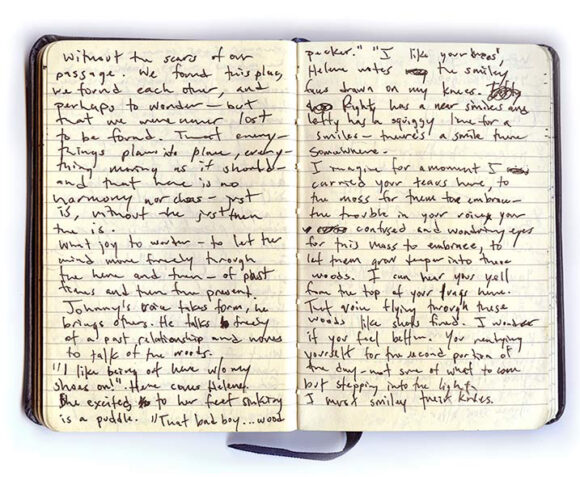 Without the scars of our
passage. We found this place,
we found each other, and
perhaps to wonder — but
that we were never lost
to be found. T— every-
things plans its place, every-
thing moving as it should —
and that here is no
harmony nor chaos — just
is, without the just then
the is.
What joy to wonder — to let the
mind move freely through
the here and then — of past
teams and turn present.
Johnny's voice takes form, he
brings others. He talks freely
of a past relationship and moves
to talk of the woods.
"I like being out here w/o my
shoes on." Here comes Helene.
She excited to her feet sinking
is a puddle. "That bad boy... wood
pecker." "I like your trees",
Helene notes the smiley
faces drawn on my knees.
Righty has a new smiles and
lefty has a squiggy line for a
smiles — there's a smile there
somewhere.
I imagine for a moment I
carried your tears here, to
the moss for them to embrace —
the trouble in your voice your
confused and wondering eyes
for this moss to embrace, to
let them grow deeper into these
woods. I can hear your yell
from the top of your lungs here.
That voice flying through these
woods like shots fired. I wonder
if you feel better. You readying
yourself for the second portion of
the day — not sure of what to come
but stepping into the light.
I must smiley knees.